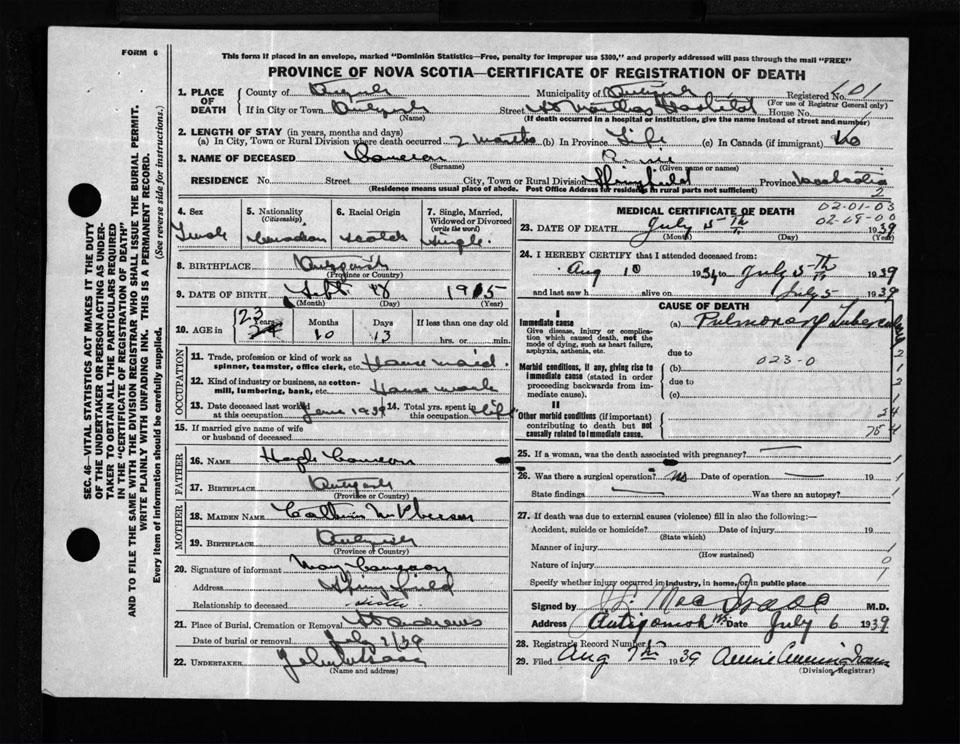 FORM 6
This form if placed in an envelope, marked "Dominion Statistics—Free, penalty for improper use $300," and properly addressed will pass through the mail "FREE"
PROVINCE OF NOVA SCOTIA—CERTIFICATE OF REGISTRATION OF DEATH
SEC. 46—VITAL STATISTICS ACT MAKES IT THE DUTY
OF THE UNDERTAKER OR PERSON ACTING AS UNDER-
TAKER TO OBTAIN ALL THE PARTICULARS REQUIRED
IN THE "CERTIFICATE OF REGISTRATION OF DEATH"
AND TO FILE THE SAME WITH THE DIVISION REGISTRAR WHO SHALL ISSUE THE BURIAL PERMIT.
WRITE PLAINLY WITH UNFADING INK. THIS IS A PERMANENT RECORD.
Every item of information should be carefully supplied. (See reverse side for instructions.)
1. PLACE OF DEATH
County of Antigonish Municipality of Antigonish Registered No. 101
(For use of Registrar General only)
If in City or Town Antigonish Street St Marthas Hospital House No.
(Name) (If death occurred in a hospital or institution, give the name instead of street and number)
2. LENGTH OF STAY (in years, months and days)
(a) In City, Town or Rural Division where death occurred 2 months (b) In Province Life (c) In Canada (if immigrant) No
3. NAME OF DECEASED Cameron
(Surname) (Given name or names)
RESIDENCE No. Street City, Town or Rural Division Springfield Province
(Residence means usual place of abode. Post Office Address for residents in rural parts not sufficient) 2
4. Sex
5. Nationality
(Citizenship)
6. Racial Origin
7. Single, Married, Widowed or Divorced
(write the word)
Female Canadian Scotch Single
8. BIRTHPLACE Antigonish
(Province or Country)
9. DATE OF BIRTH Sept 18 1915
(Month) (Day) (Year)
10. AGE in 23 Years 10 Months 13 Days If less than one day old
hrs. or min.
OCCUPATION
11. Trade, profession or kind of work as spinner, teamster, office clerk, etc. House maid
12. Kind of industry or business, as cotton-mill, lumbering, bank, etc. House work
13. Date deceased last worked at this occupation June 1939 14. Total yrs. spent in this occupation life
15. If married give name of wife or husband of deceased
FATHER
16. NAME Hugh Cameron
17. BIRTHPLACE Antigonish
(Province or Country)
MOTHER
18. MAIDEN NAME McPherson
19. BIRTHPLACE Antigonish
(Province or Country)
20. Signature of informant May Cameron
Address Springfield
Relationship to deceased sister
21. Place of Burial, Cremation or Removal St Andrews
Date of burial or removal July /39
22. UNDERTAKER John
(Name and address)
MEDICAL CERTIFICATE OF DEATH
02-01-03
02-09-00
23. DATE OF DEATH July 5th 1939
(Month) (Day) (Year)
24. I HEREBY CERTIFY that I attended deceased from:
Aug 10 to July 5th 1939
and last saw h alive on July 5 1939
CAUSE OF DEATH
I
Immediate cause
Give disease, injury or complication which caused death, not the mode of dying, such as heart failure, asphyxia, asthenia, etc.
(a) Pulmonary Tuberculosis
due to
Morbid conditions, if any, giving rise to immediate cause (stated in order proceeding backwards from immediate cause).
(b) 023-0
due to
(c)
II
Other morbid conditions (if important) contributing to death but not causally related to immediate cause.
25. If a woman, was the death associated with pregnancy?
26. Was there a surgical operation? no Date of operation 19
State findings Was there an autopsy?
27. If death was due to external causes (violence) fill in also the following:—
Accident, suicide or homicide? Date of injury 19
(State which)
Manner of injury
(How sustained)
Nature of injury
Specify whether injury occurred in industry, in home, or in public place
Signed by MacIsaac M.D.
Address Antigonish NS. Date July 6 1939
28. Registrar's Record Number
29. Filed Aug 7th 1939 Annie Cunningham
(Division Registrar)